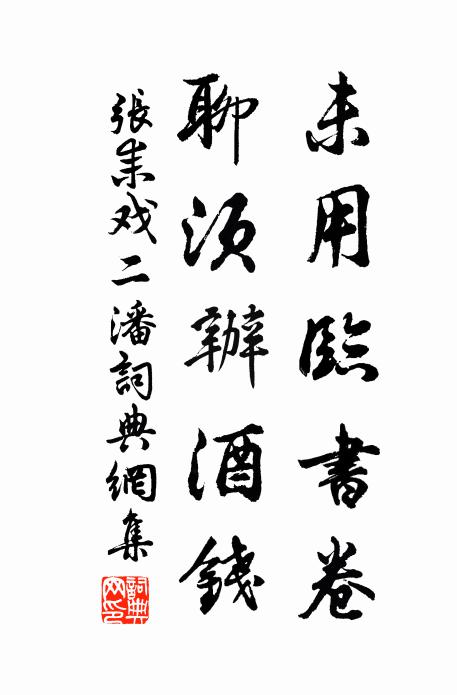 未用臨書卷
聊須辦酒錢
張耒戏二潘詞典網集
詞典网印